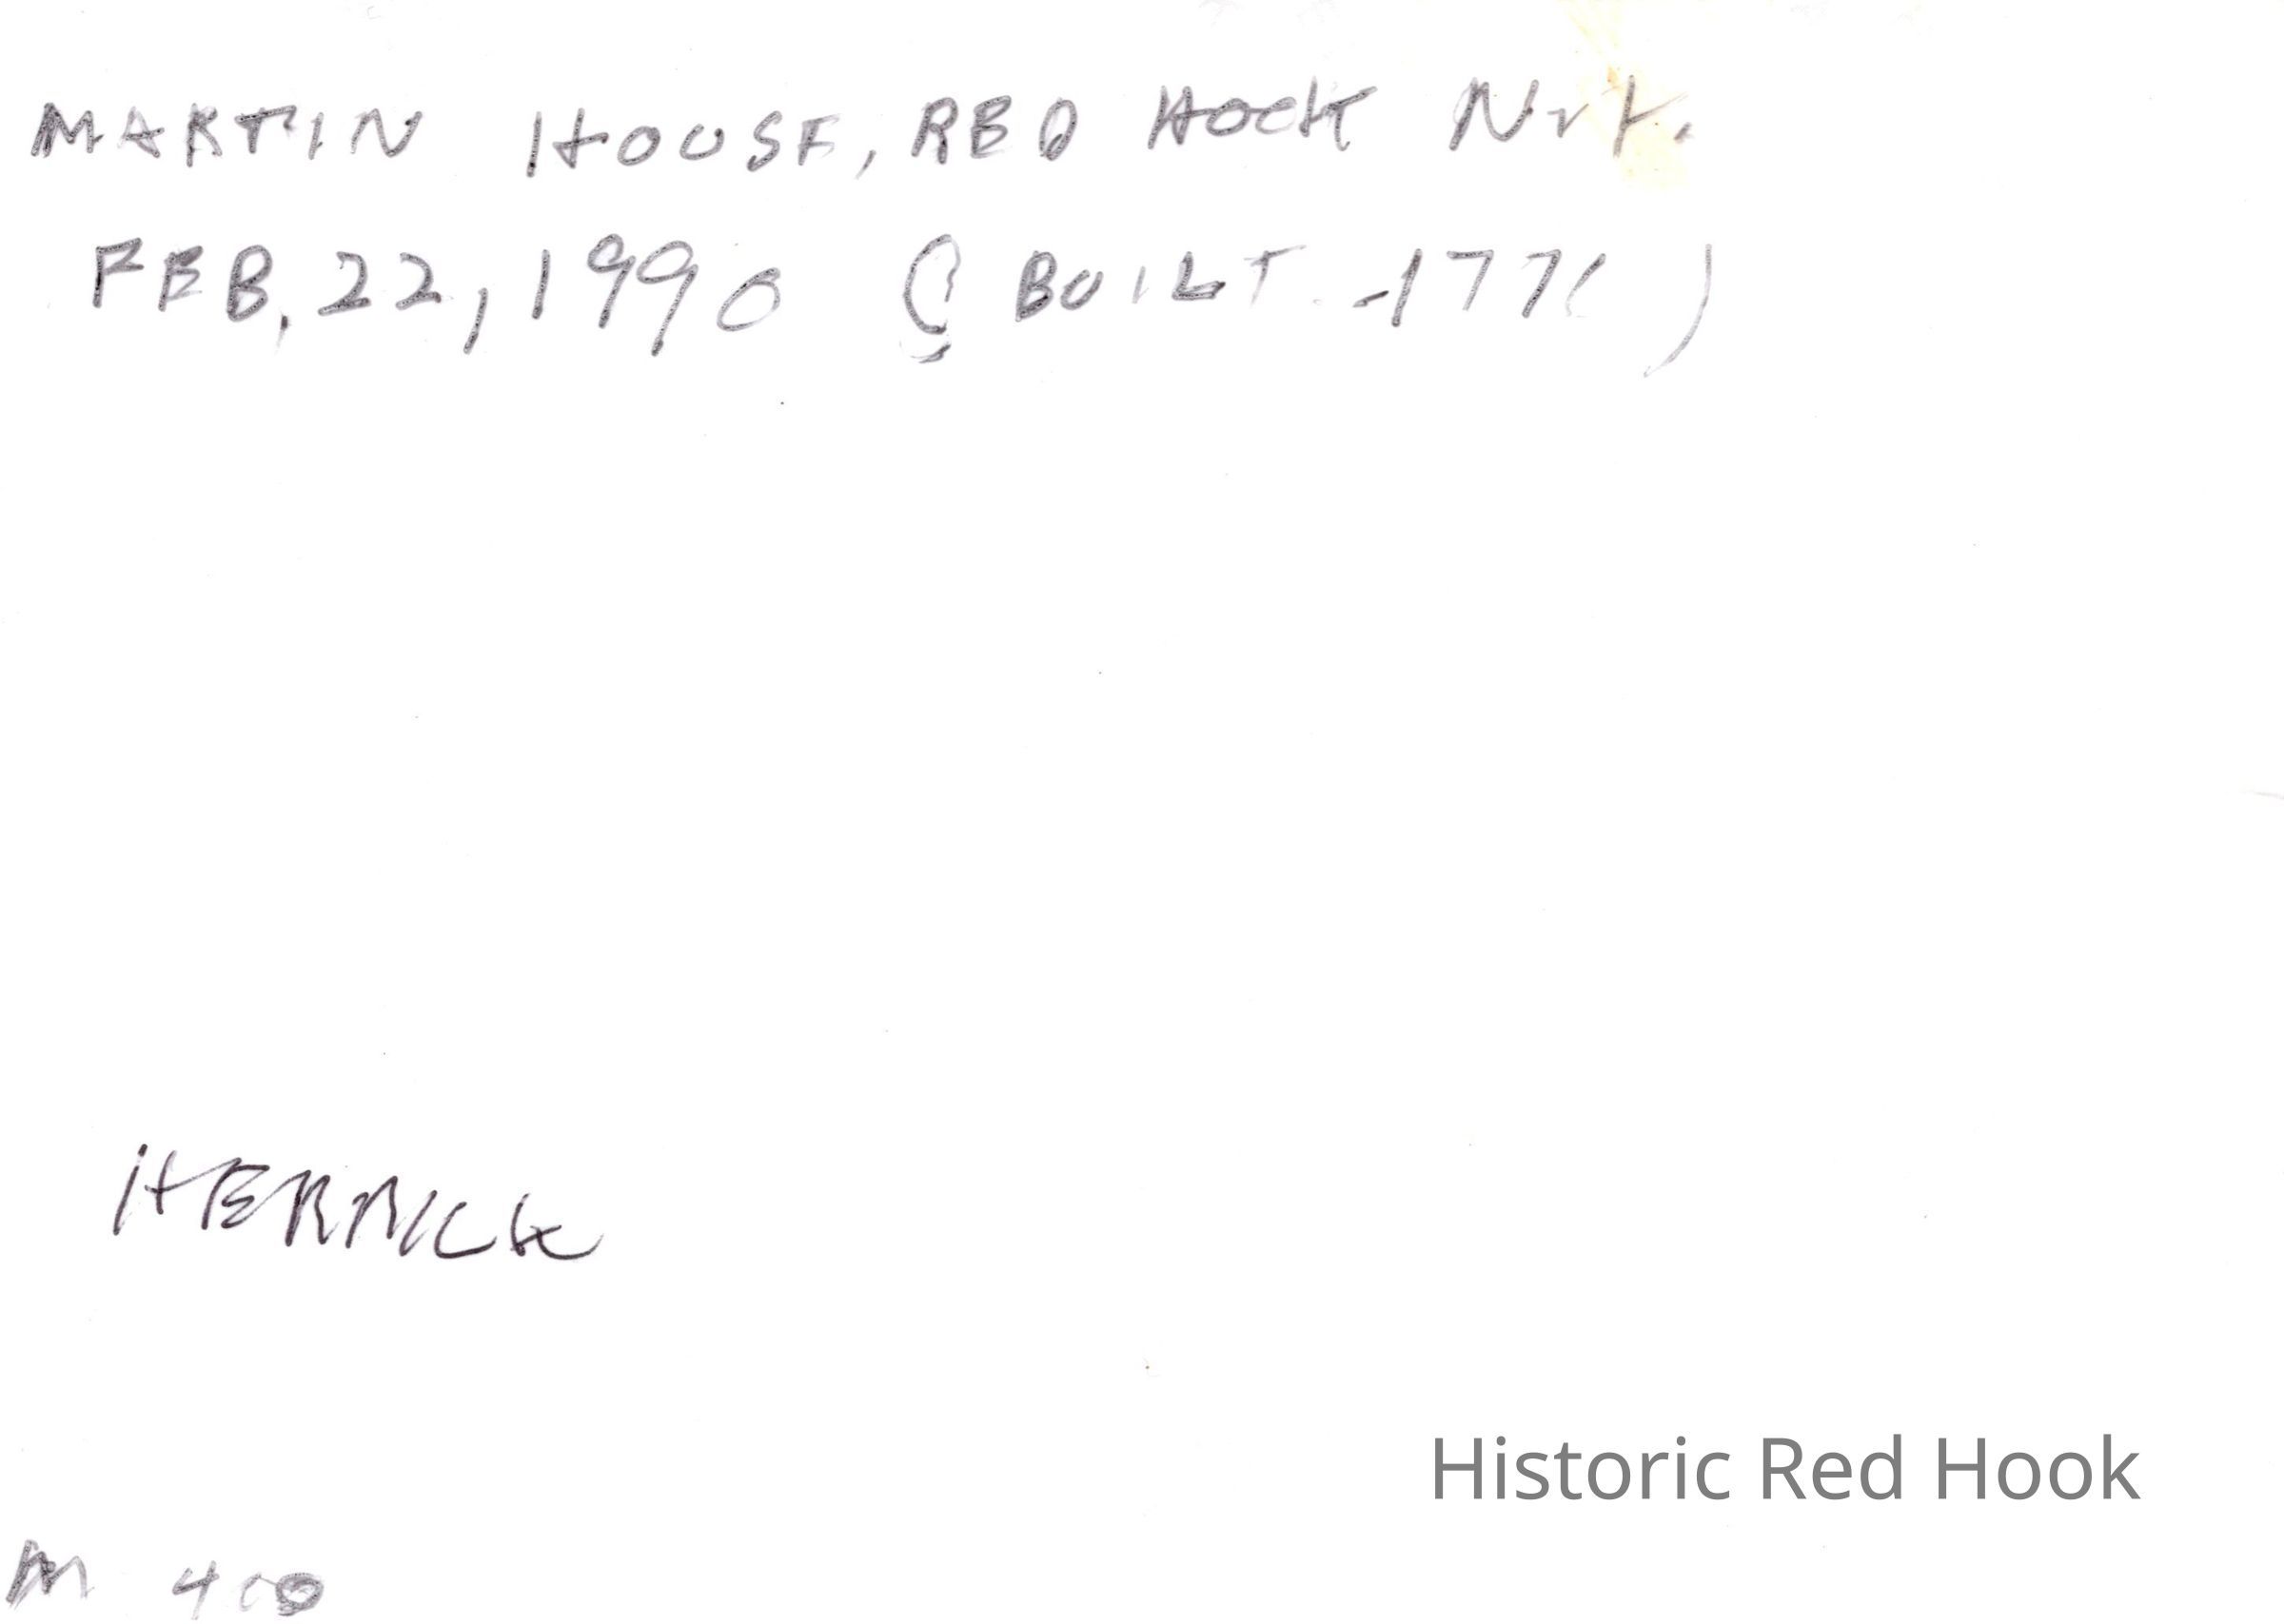 MARTIN HOUSE, RED HOOK N.Y.
FEB. 22, 1990 ( BUILT
HERRICK
Historic Red Hook
M 400